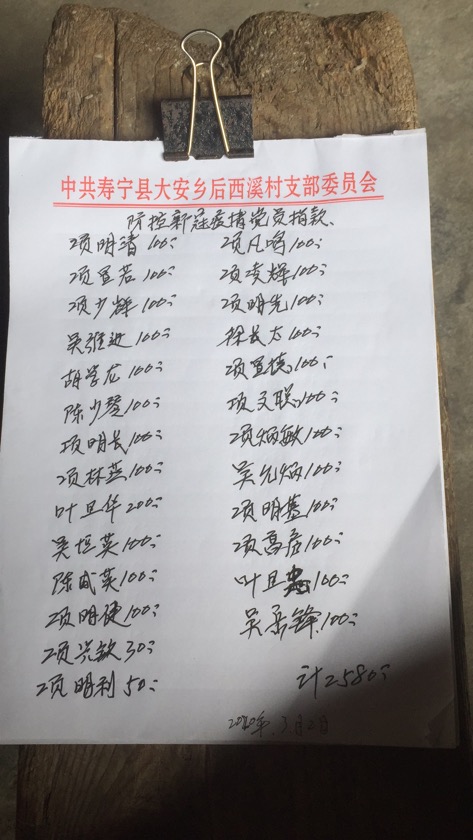 中共寿宁县大安乡后西溪村支部委员会
防控新冠疫情党员捐款、
项明清100元 项凡鸣100元
项宣若100元 项凌辉100元
项少辉100元 项明光100元
吴维进100元 徐长太100元
胡学龙100元 项宣德100元
陈少琴100元 项文联100元
项明长100元 项炳敏100元
项林燕100元 吴允炳100元
叶旦华200元 项明基100元
吴恒英100元 项高居100元
陈成英100元 叶旦忠100元
项明健100元 吴岳锋100元
项兴钦30元
项明利50元 计2580元
2020年3月2日